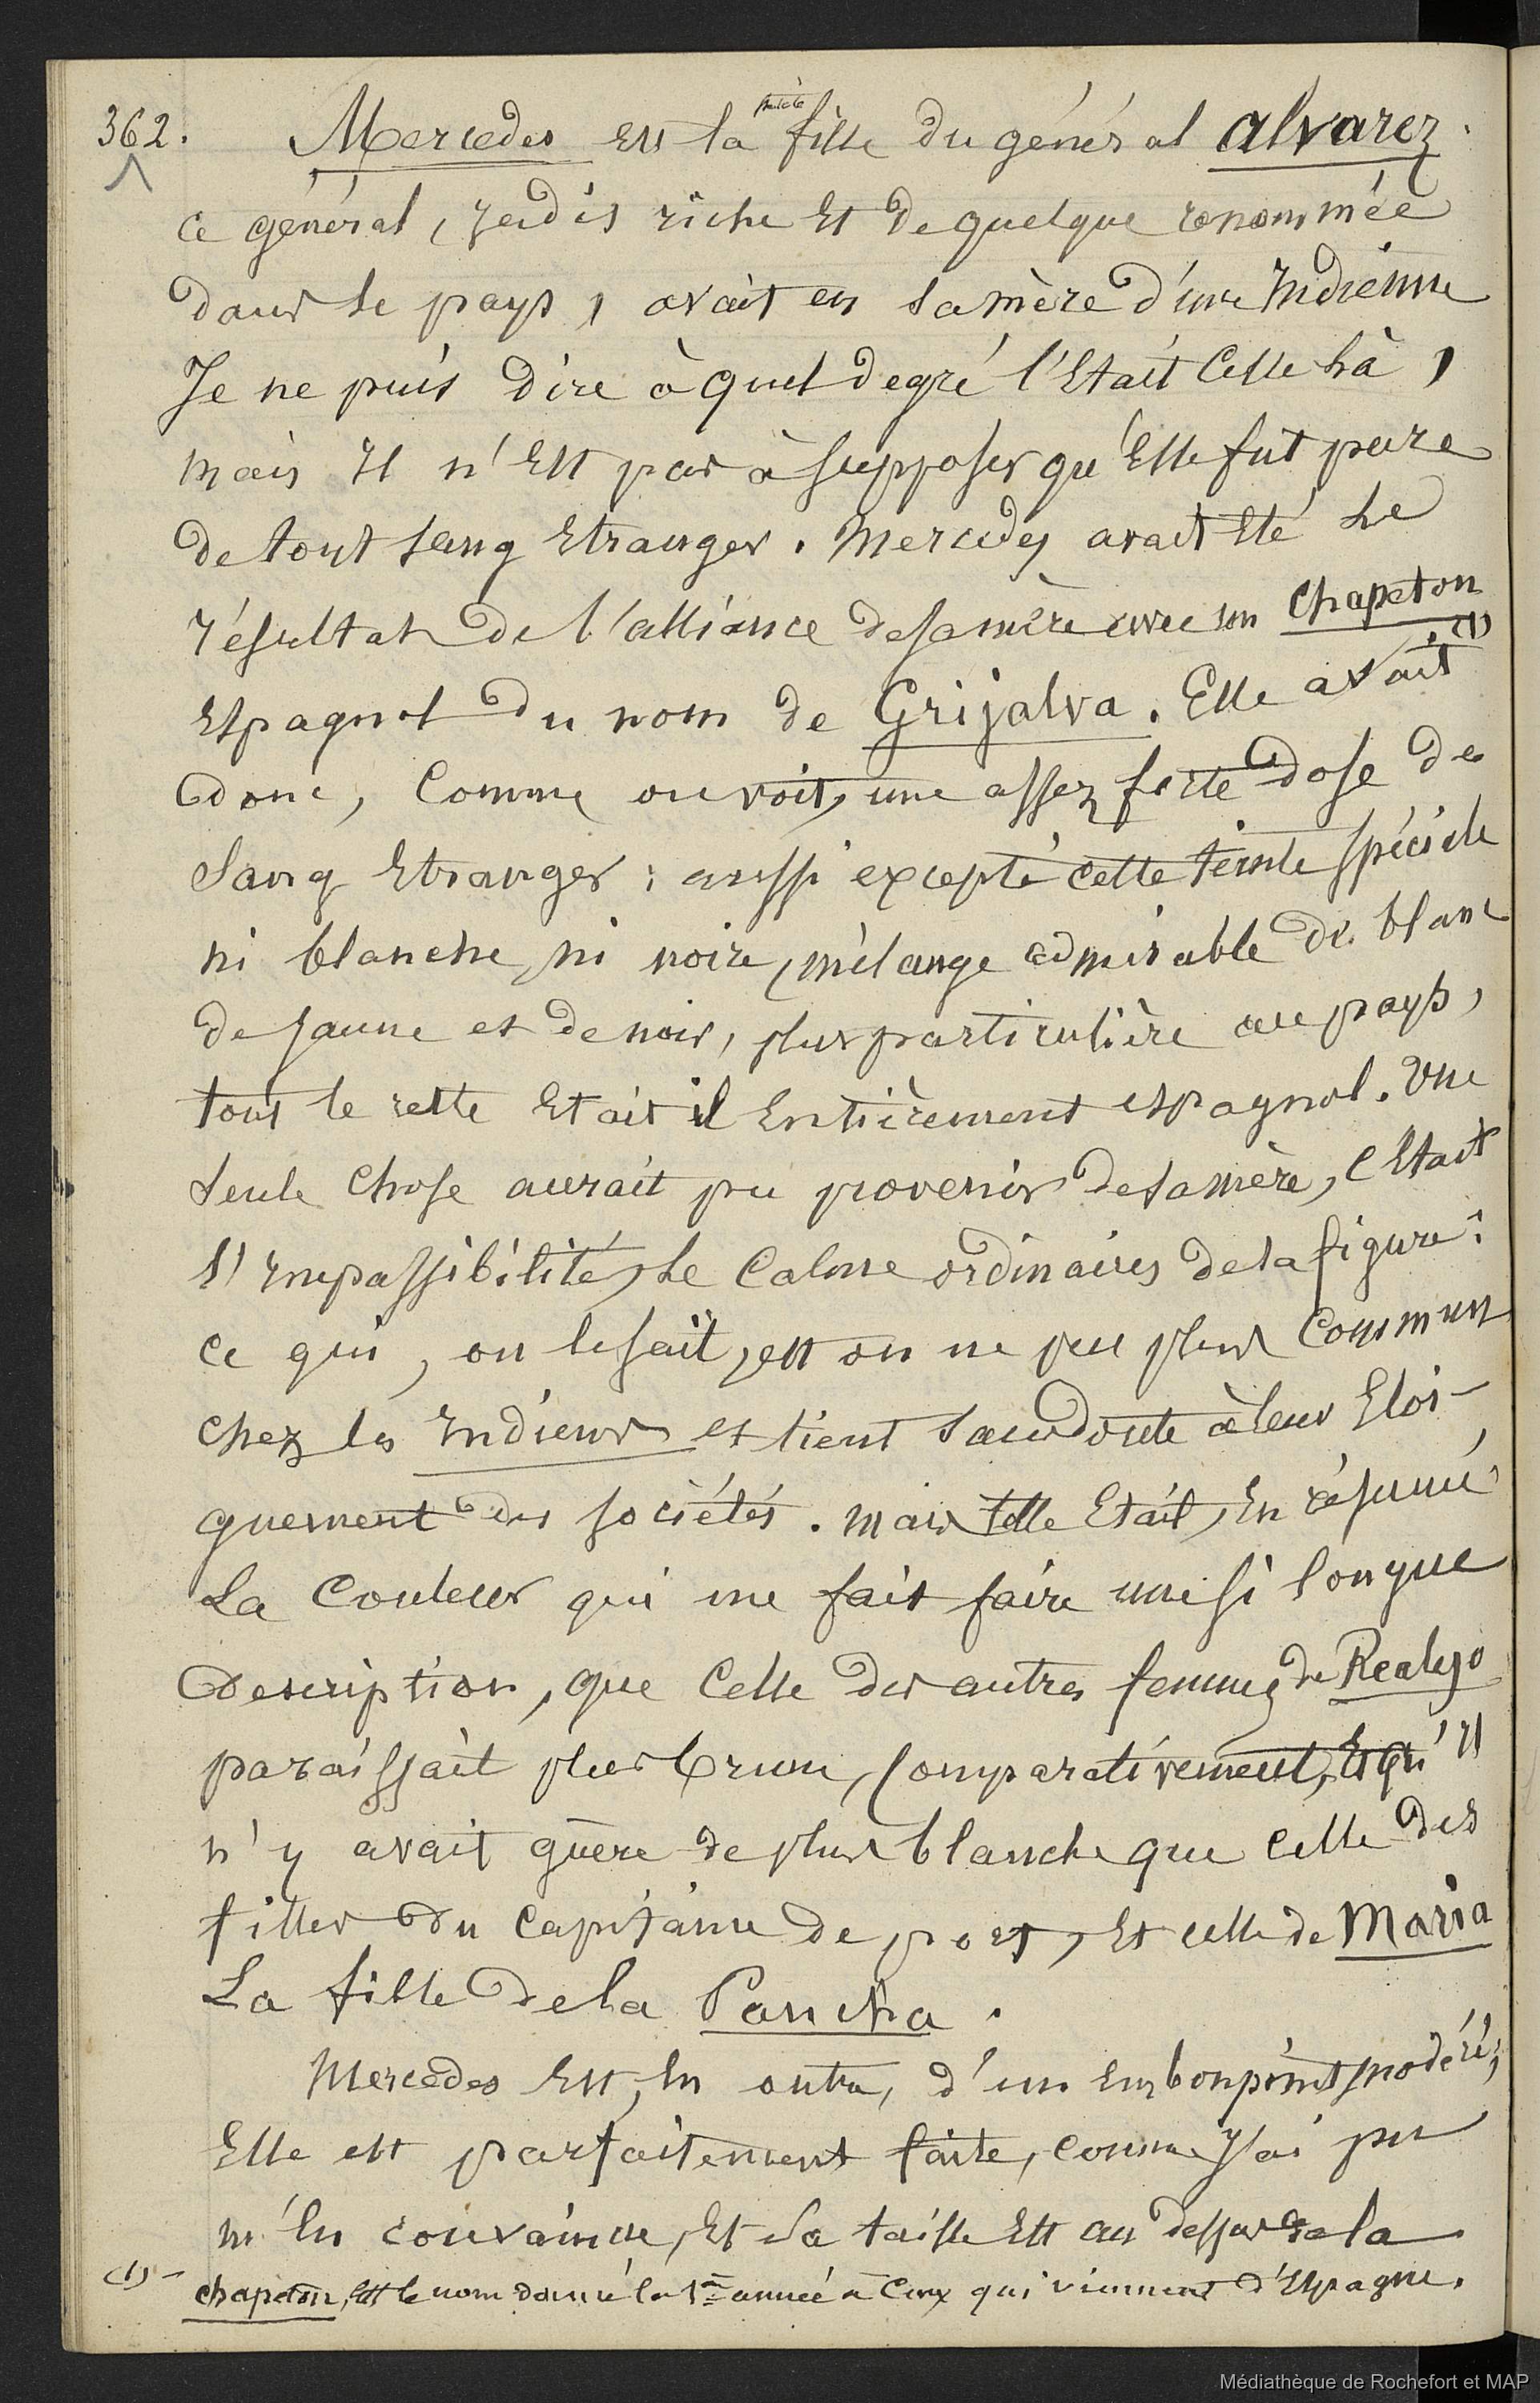 362. Mercedes est la petite fille du général alvarez.
ce général, jadis riche et de quelque renommée
dans le pays, avait eu sa mère d'une Indienne
Je ne puis dire à quel degré l'était celle là,
mais Il n'est pas à supposer qu'elle fut pure
de tout sang Etranger. Mercedes avait été le
résultat de l'alliance de sa mère avec un chapeton (1)
Espagnol du nom de Grijalva. Elle avait
donc, comme on voit, une assez forte dose de
sang Etranger : aussi excepté cette teinte spéciale
ni blanche, ni noire, mélange admirable de blanc
de jaune et de noir, plus particulière au pays,
tout le reste était il Entièrement espagnol. Une
seule chose aurait pu provenir de sa mère, c'était
l'Impassibilité, Le Calme ordinaires de sa figure :
ce qui, on le sait, est on ne peu plus Commun
chez les Indiens et tient sans doute à leur Eloi-
gnement des sociétés. mais telle était, En résumé
La Couleur qui me fait faire une si longue
Description, que Celle des autres femmes de Realejo
paraissait plus brune, comparativement, Et qu'Il
n'y avait guère de plus blanche que celle des
filles du Capitaine de port, Et celle de Maria
La fille de la Pancha.
Mercedes Est, En outre, d'un Embonpoint modéré,
Elle est parfaitement faite, comme J'ai pu
m'En convaincre, Et sa taille Est au dessus de la
(1) - chapeton, Est le nom donné la 1ère année à Ceux qui viennent d'Espagne.
Médiathèque de Rochefort et MAP